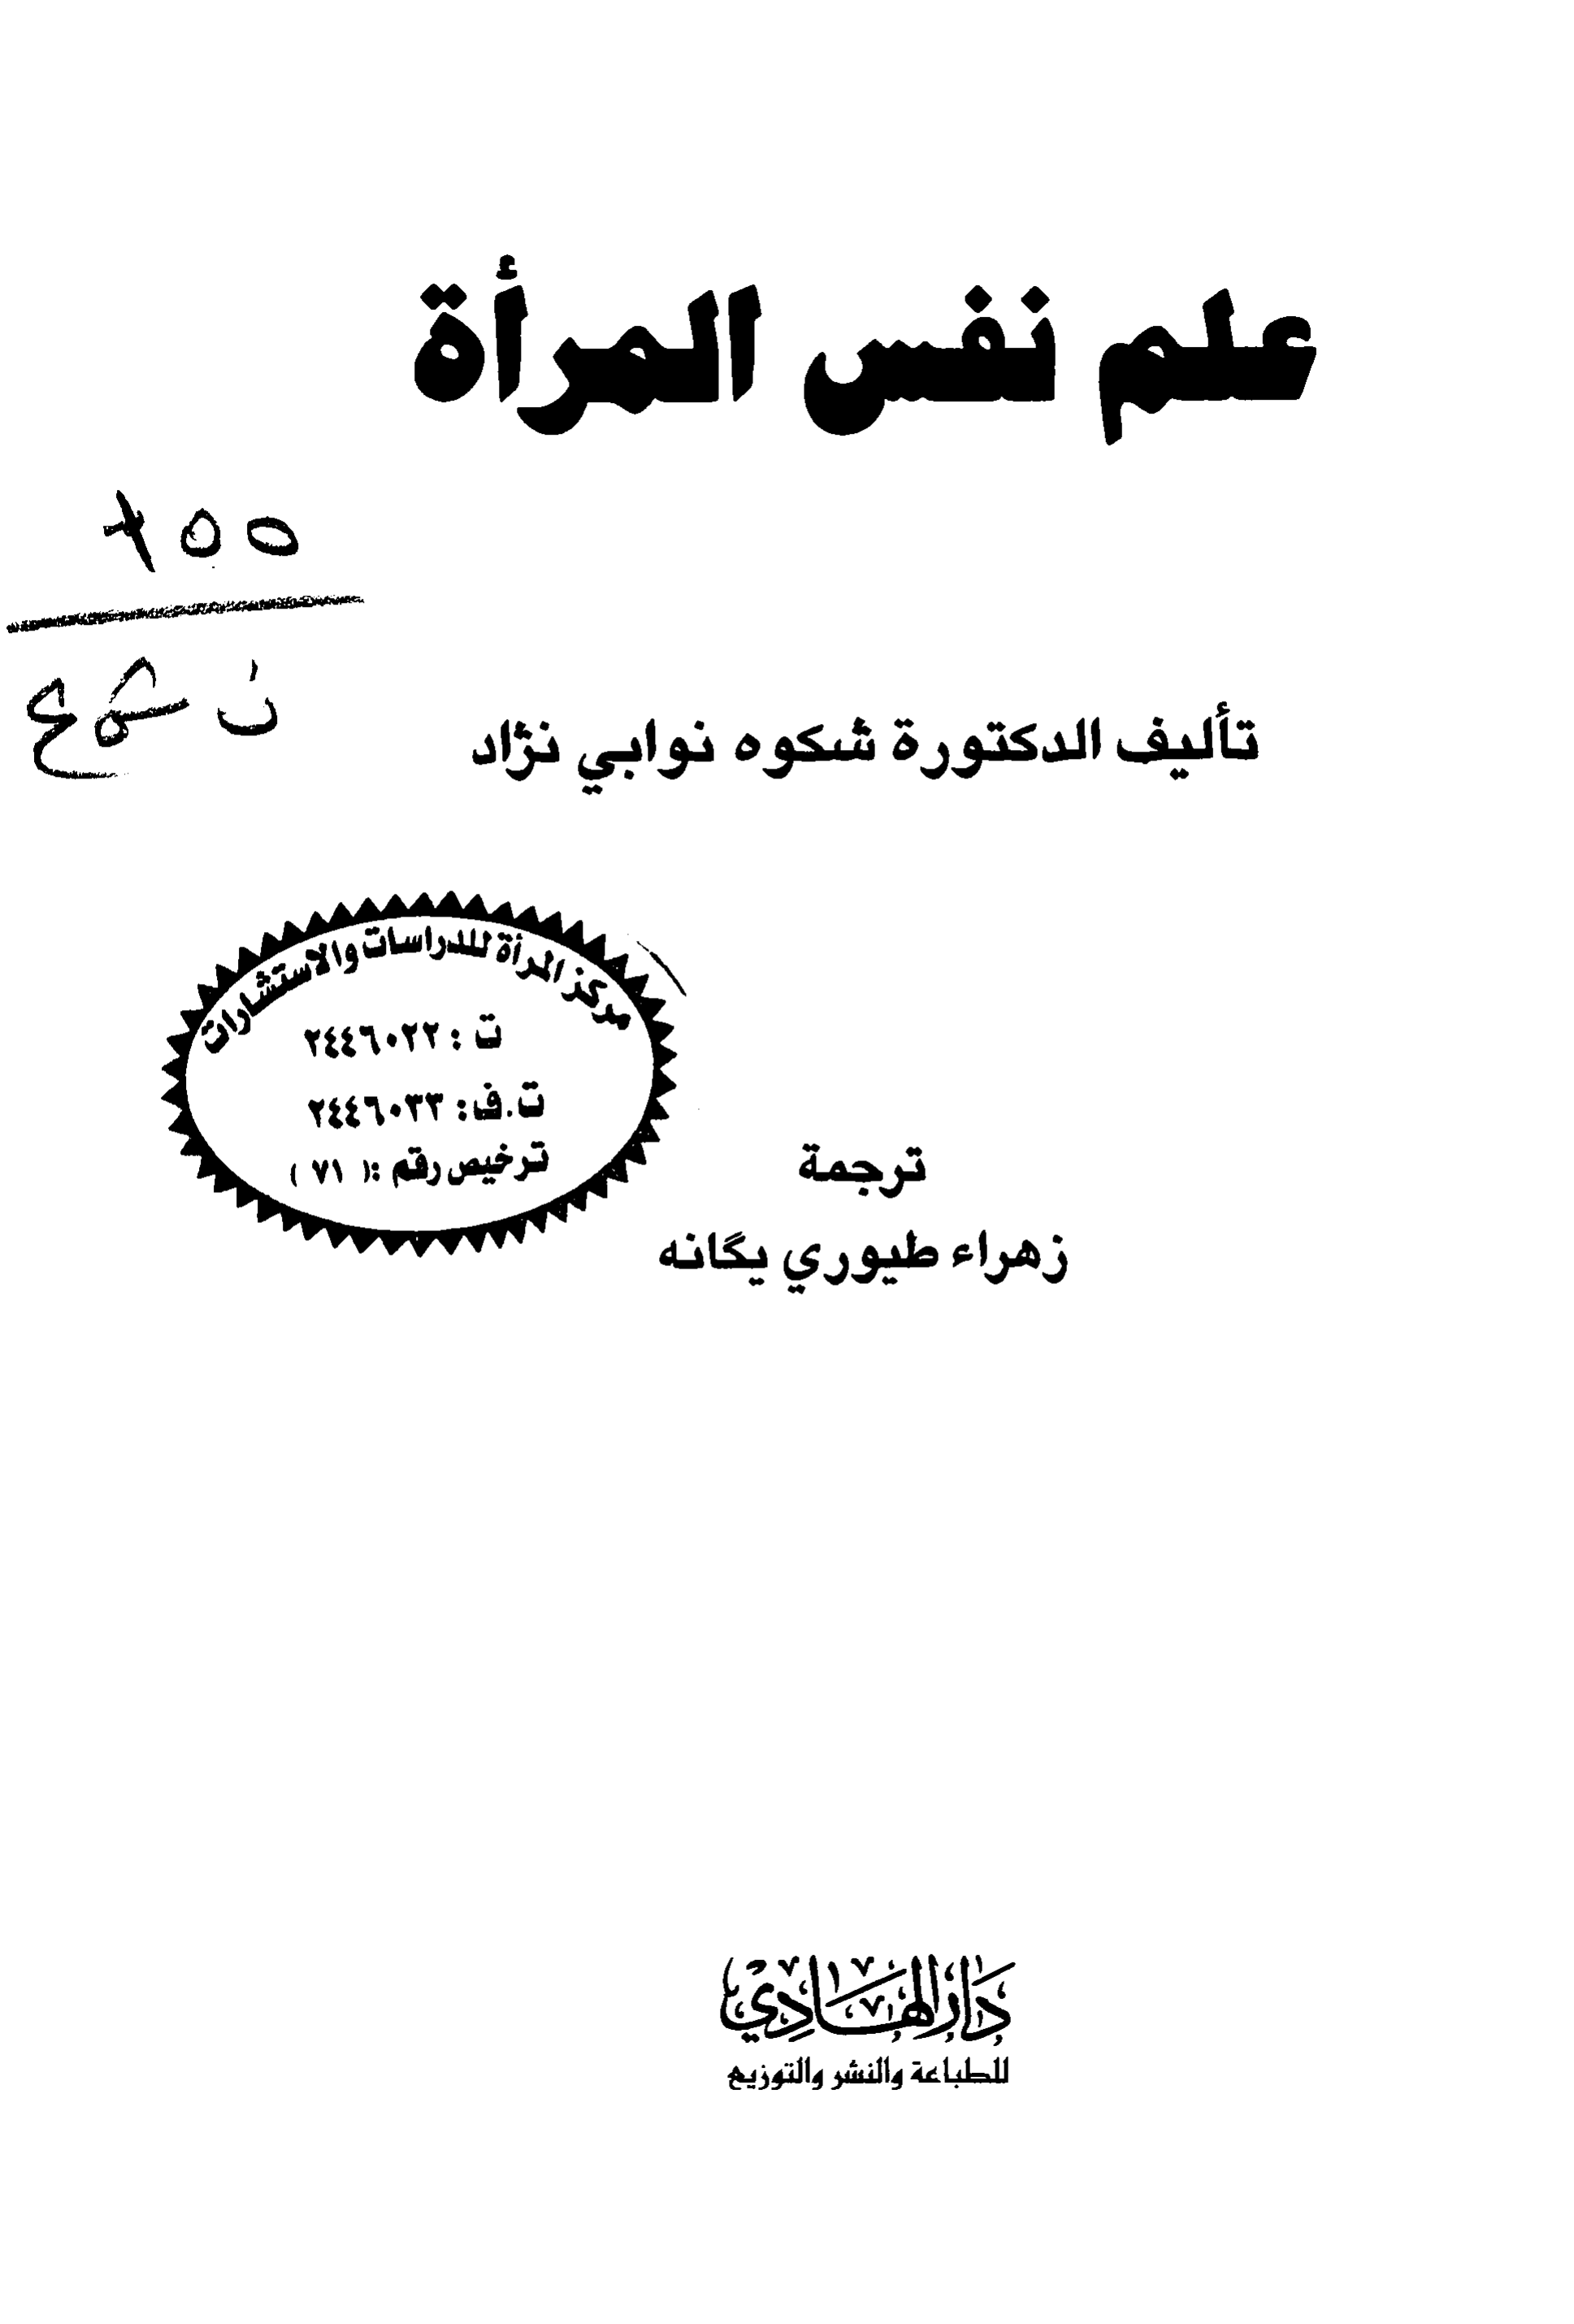 علم نفس المرأة
تأليف الدكتورة شكوه نوابي نژاد
مركز المرأة للدراسات والاستشارات
ت : ٢٤٤٦٠٢٢
ت.ف: ٢٤٤٦٠٣٣
ترخيص رقم :( ٧١ )
ترجمة
زهراء طيوري يگانه
دار الهادي
للطباعة والنشر والتوزيع